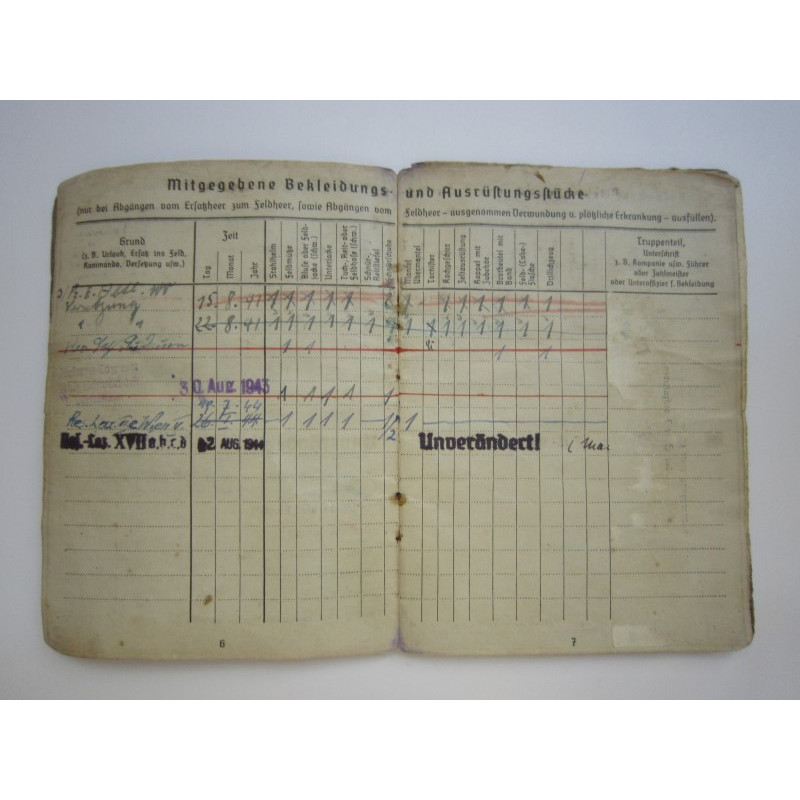 Mitgegebene Bekleidungs- und Ausrüstungsstücke
(nur bei Abgängen vom Ersatzheer zum Feldheer, sowie Abgängen vom Feldheer – ausgenommen Verwundung u. plötzliche Erkrankung – ausfüllen).
Grund
(z. B. Urlaub, Ersatz ins Feld,
Kommando, Versetzung usw.)
Zeit
Tag
Monat
Jahr
Stahlhelm
Feldmütze
Bluse oder Feld-
jacke (schw.)
Unterjacke
Tuch-, Reit- oder
Feldhose (schw.)
Schnür-
Reitstiefel
Schnürschuhe
Mantel
Übermantel
Tornister
Kochgeschirr
Zeltausrüstung
Koppel mit
Zubehör
Brotbeutel mit
Band
Feld-(Labe-)
Flasche
Drillichzeug
Truppenteil,
Unterschrift
z. B. Kompanie usw. Führer
oder Zahlmeister
oder Unteroffizier f. Bekleidung
15. 8. 41 1 1 1 1 1 2 1 1 1 1 1 1 1
Versetzung
" " 22. 8. 41 1 1 1 1 1 1 1 1 1 1 1 1 1 1
1 1 1 1
30. Aug. 1943 1 1 1 1 1
7. 44
26. I. 44 1 1 1 1 1 1/2 1
Res.-Laz. XVII a,b,c,d 2 AUG. 1944 Unverändert!
6
7